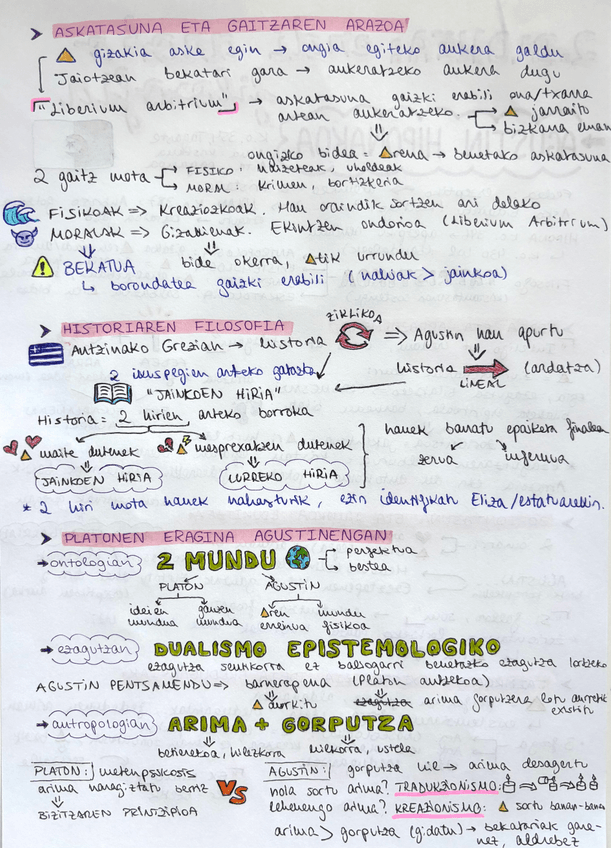 ASKATASUNA ETA GAITZAREN ARAZOA
gizakia aske egin → ongia egiteko aukera galdu
Jaiotzean bekatari gara → aukeratzeko aukera dugu
"Liberium arbitrium" → askatasuna gaizki erabili ona/txarra
artean aukeratzeko. jarraitu
bizkana eman
ongizko bidea = rena → benetako askatasuna
2 gaitz mota FISIKO: uholdeak
MORAL: Krimen, bortizkeria
FISIKOAK => Kreaziozkoak. Hau oraindik sortzen ari delako
MORALAK => Gizakienak. Ekintzen ondorioa (Liberium Arbitrium)
BEKATUA bide okerra, tik urrundu
↳ borondatea gaizki erabili (nahiak > jainkoa)
HISTORIAREN FILOSOFIA
ZIKLIKOA
Antzinako Grezian → historia => Agustin hau apurtu
2 ikuspegien arteko gatazka historia (ardatza)
LINEAL
"JAINKOEN HIRIA"
Historia = 2 hirien arteko borroka
hauek banatu epaiketa finalean
maite dutenek mesprexatzen dutenek
zerua infernua
JAINKOEN HIRIA LURREKO HIRIA
* 2 hiri mota hauek nahasturik, ezin identifikatu Eliza/estatuarekin.
PLATONEN ERAGINA AGUSTINENGAN
→ ontologian 2 MUNDU perfektua
bestea
PLATON AGUSTIN
ideien mundua gauzen mundua ren erreinua mundu fisikoa
→ ezagutzan DUALISMO EPISTEMOLOGIKO
ezagutza sentikorra ez baliogarri benetazko ezagutza lortzeko
AGUSTIN PENTSAMENDU => barnerapena (Platon antzekoa)
aurkitu ezagutza arima gorputzera lotu aurretik
existitu
→ antropologian ARIMA + GORPUTZA
betierekoa, hilezkorra hilkorra, ustela
PLATON: metenpsicosis
arima berriz
BIZITZAREN PRINTZIPIOA
VS
AGUSTIN: gorputza hil → arima desagertu
nola sortu arima? TRADUKZIONISMO:
lehenengo arima? KREAZIONISMO: sortu banan-bana
arima > gorputza (gidatu) → bekatariak gare-
nez, aldrebez